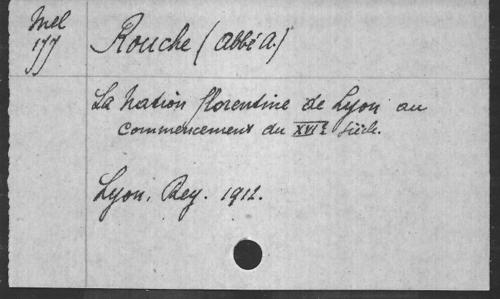 Mel
177
Rouche (abbé A.)
La Nation florentine de Lyon au
commencement du XVIe siècle.
Lyon, Rey. 1912.